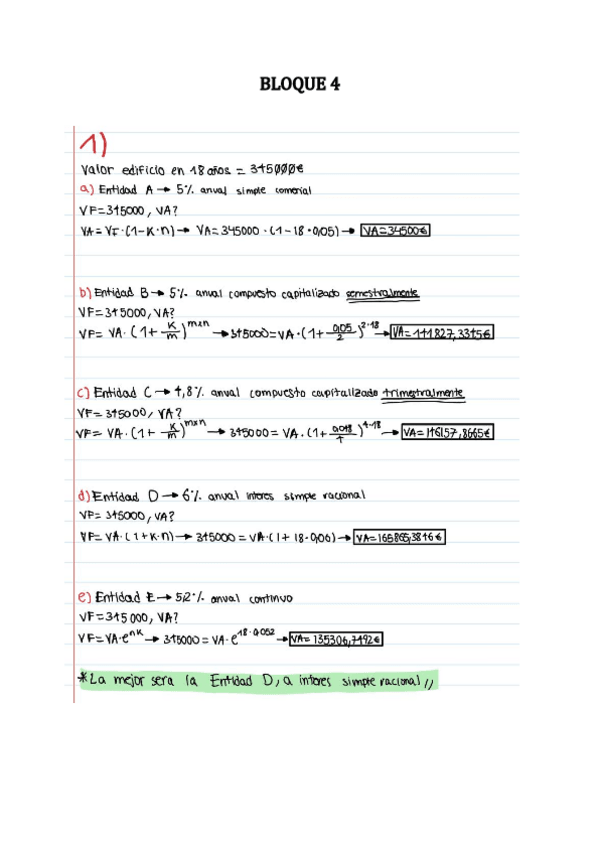 BLOQUE 4
1)
Valor edificio en 18 años = 345000€
a) Entidad A → 5% anual simple comercial
VF=345000, VA?
VA = VF·(1-K·n) → VA=345000·(1-18·0,05) → VA=34500€
b) Entidad B → 5% anual compuesto capitalizado semestralmente
VF=345000, VA?
VF= VA·(1+ K/m)^m×n → 345000=VA·(1+ 0,05/2)^2·18 → VA=141827,3345€
c) Entidad C → 4,8% anual compuesto capitalizado trimestralmente
VF= 345000, VA?
VF= VA·(1+ K/m)^m×n → 345000= VA·(1+ 0,048/4)^4·18 → VA=146157,8665€
d) Entidad D → 6% anual interes simple racional
VF= 345000, VA?
VF= VA·(1+K·n) → 345000 = VA·(1+ 18·0,06) → VA=165865,3846€
e) Entidad E → 5,2% anual continuo
VF=345000, VA?
VF=VA·e^nK → 345000= VA·e^18·0,052 → VA= 135306,7492€
*La mejor sera la Entidad D, a interes simple racional //